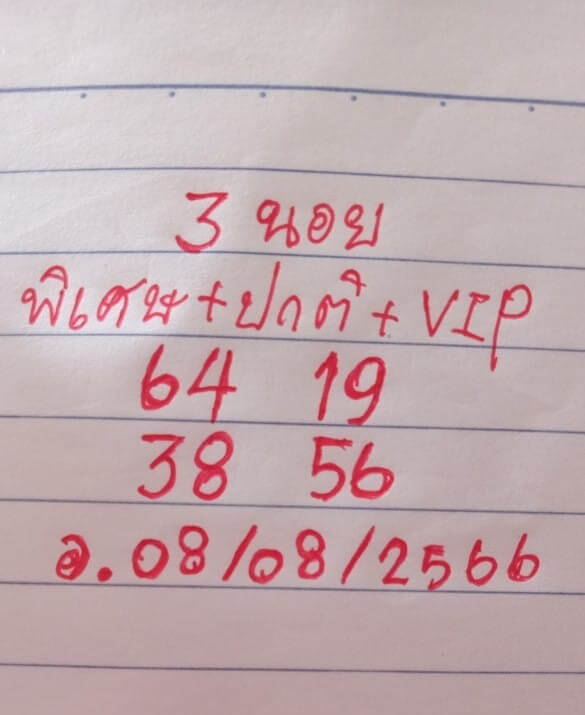 3 นอย
พิเศษ+ปกติ+VIP
64 19
38 56
อ.08/08/2566